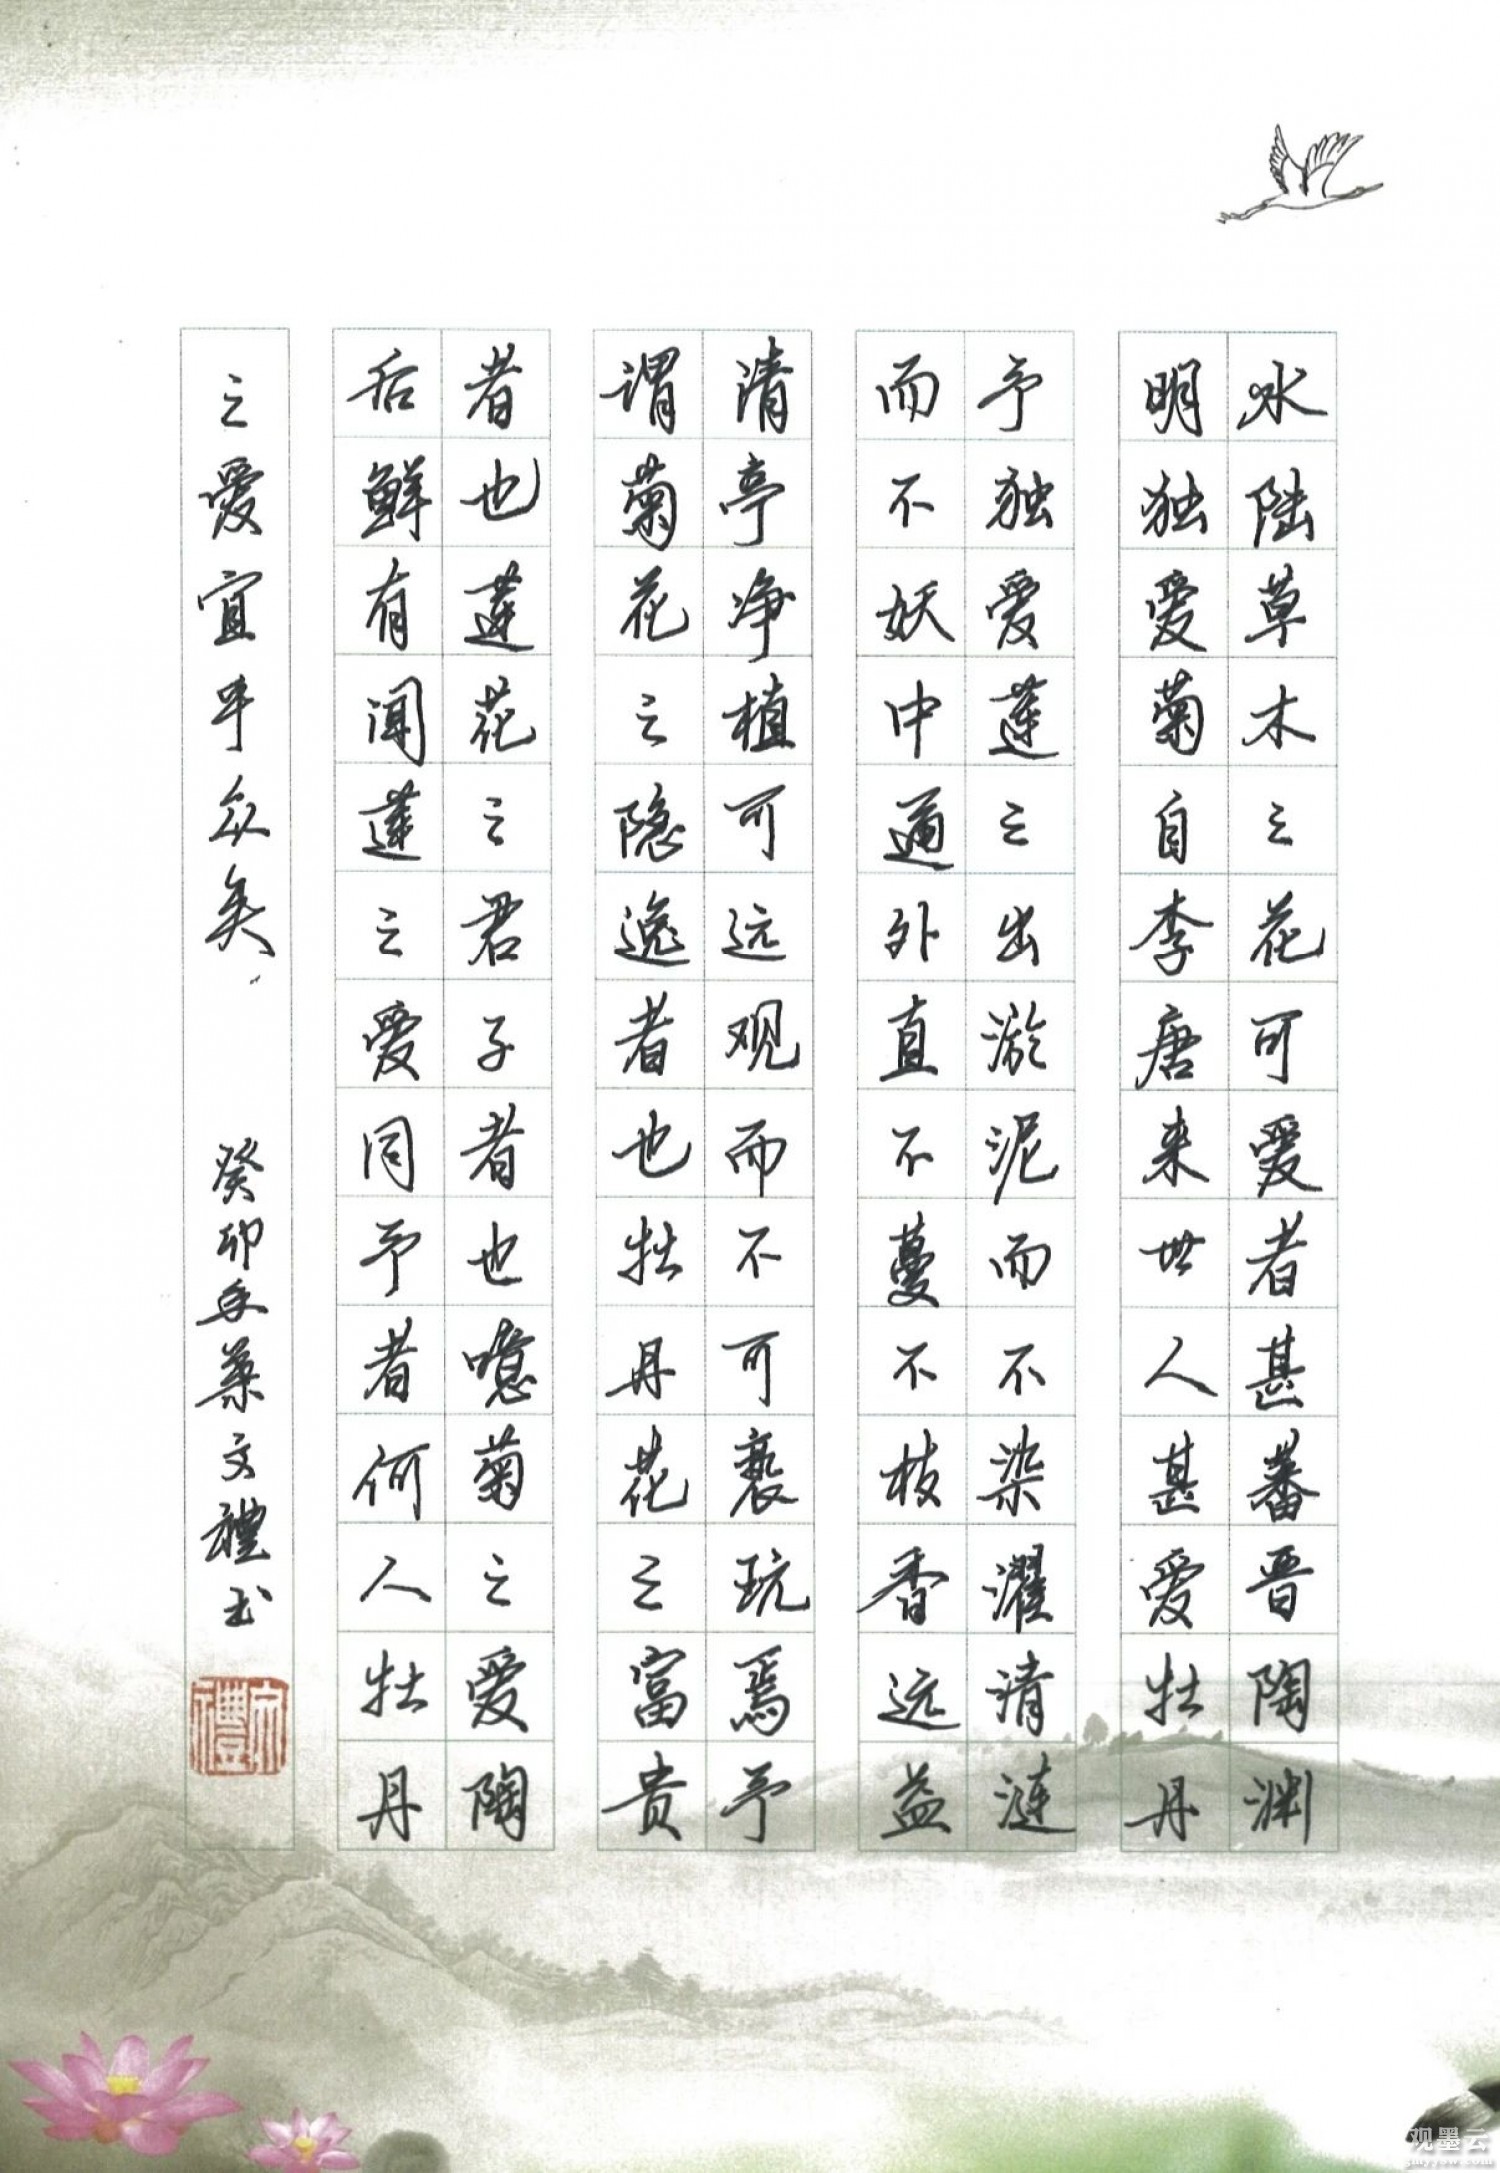 水陆草木之花可爱者甚蕃晋陶渊
明独爱菊自李唐来世人甚爱牡丹
予独爱莲之出淤泥而不染濯清涟
而不妖中通外直不蔓不枝香远益
清亭净植可远观而不可亵玩焉予
谓菊花之隐逸者也牡丹花之富贵
者也莲花之君子者也噫菊之爱陶
后鲜有闻莲之爱同予者何人牡丹
之爱宜乎众矣 癸卯年葉文禮书
文禮
观墨云